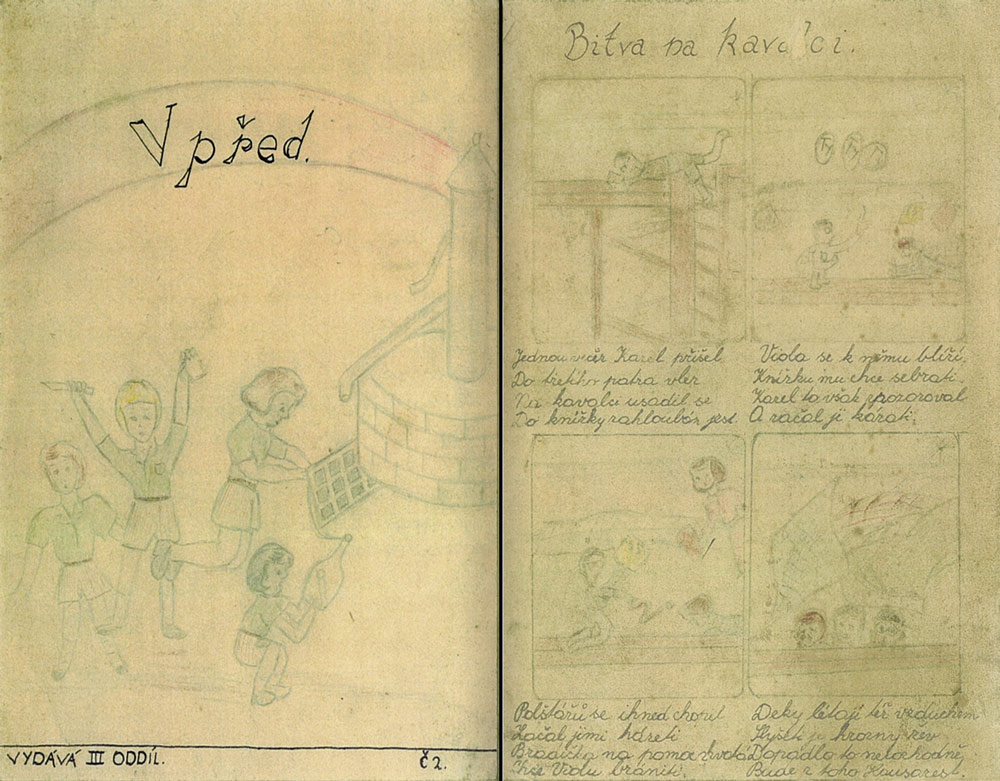 Vpřed.
VYDÁVÁ III ODDÍL.
Č2.
Bitva na kavalci.
Jednou večer Karel přišel
Do třetího patra vlez
Na kavalci usadil se
Do knížky zahloubán jest
Viola se k němu blíží.
Knížku mu chce sebrati.
Karel to však zpozoroval
A začal ji kárati.
Polštářů se ihned chopil
Začal jimi házeti
na pomoc
Chce Violu brániti.
Deky létají též vzduchem
Slyšeti je hrozný řev
Dopadlo to
Bude z toho Hausarest